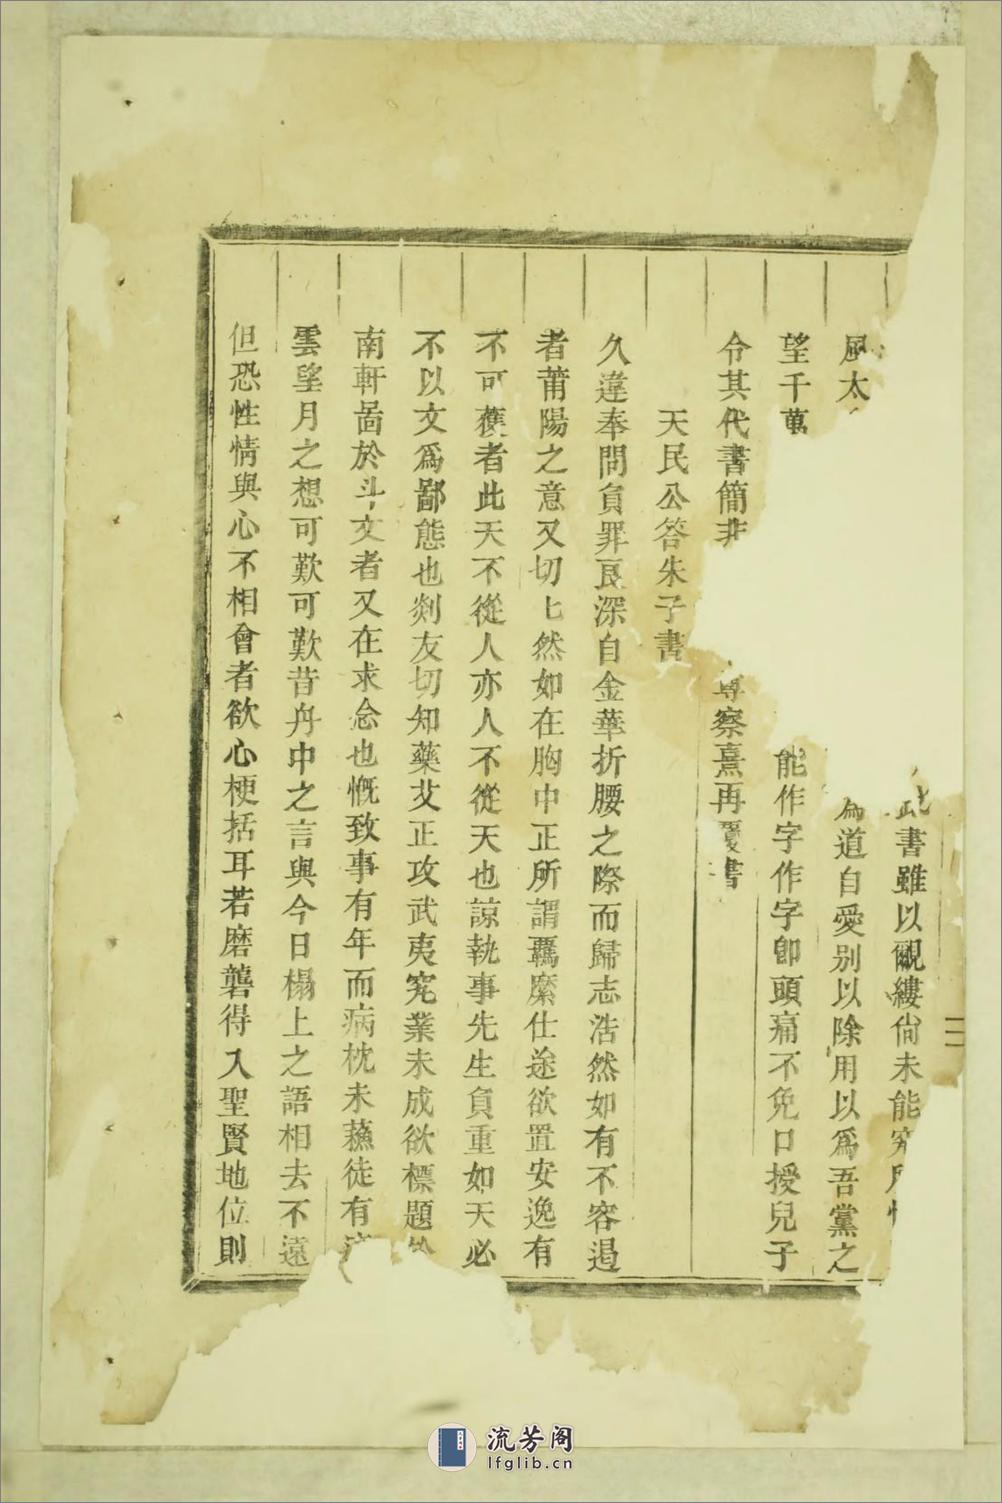 此書雖以覼縷尙未能究
風太爲道自愛别以除用以爲吾黨之
望千萬能作字作字卽頭痛不免口授兒子
令其代書簡非尊察熹再覆書
天民公答朱子書
久違奉問負罪良深自金華折腰之際而歸志浩然如有不容遏
者莆陽之意又切七然如在胸中正所謂覊縻仕途欲置安逸有
不可穫者此天不從人亦人不從天也諒執事先生負重如天必
不以文爲鄙態也剡友切知藥艾正攻武夷究業未成欲標題
南軒啚於斗文者又在求念也慨致事有年而病枕未蘓徒有
雲望月之想可歎可歎昔舟中之言與今日榻上之語相去不遠
但恐性情與心不相會者欲心梗括耳若磨礱得入聖賢地位則
二
流芳阁
lfglib.cn